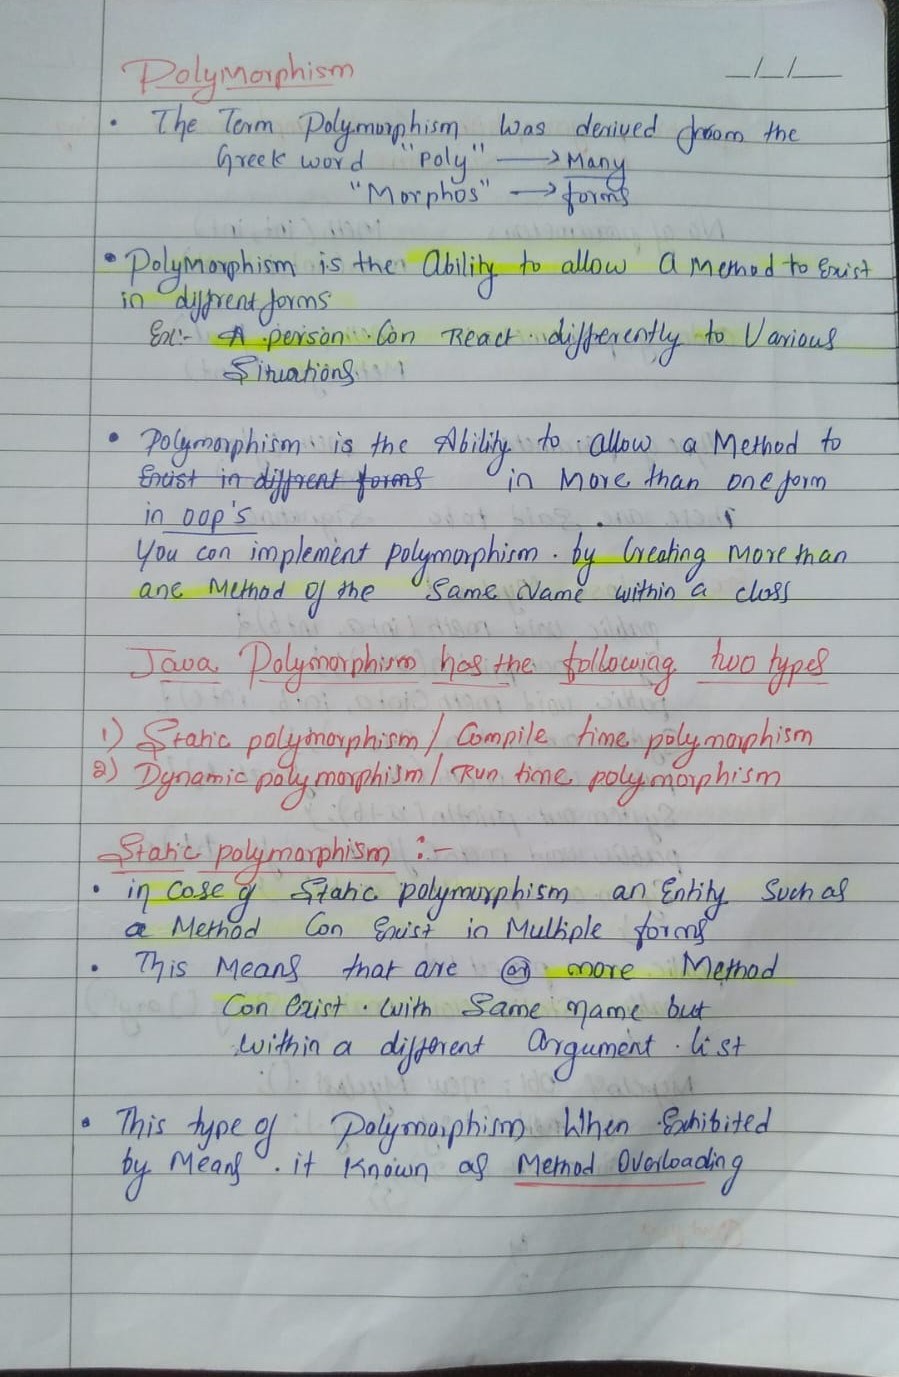 Polymorphism
_/_/__
• The Term Polymorphism was derived from the
Greek word "Poly" → Many
"Morphos" → forms
• Polymorphism is the Ability to allow a Method to Exist
in diffrent forms
Ex:- A person Can React differently to Various
Situations
• Polymorphism is the Ability to allow a Method to
Exist in diffrent forms in More than one form
in OOP's
You can implement polymorphism by Creating More than
one Method of the Same Name within a class
Java Polymorphism has the following two types
1) Static polymorphism / Compile time polymorphism
2) Dynamic polymorphism / Run time polymorphism
Static polymorphism :-
• in Case of Static polymorphism an Entity Such as
a Method Can Exist in Multiple forms
• This Means that are or more Method
Can Exist with Same name but
within a different Argument list
• This type of Polymorphism When Exhibited
by Means it Known as Method Overloading